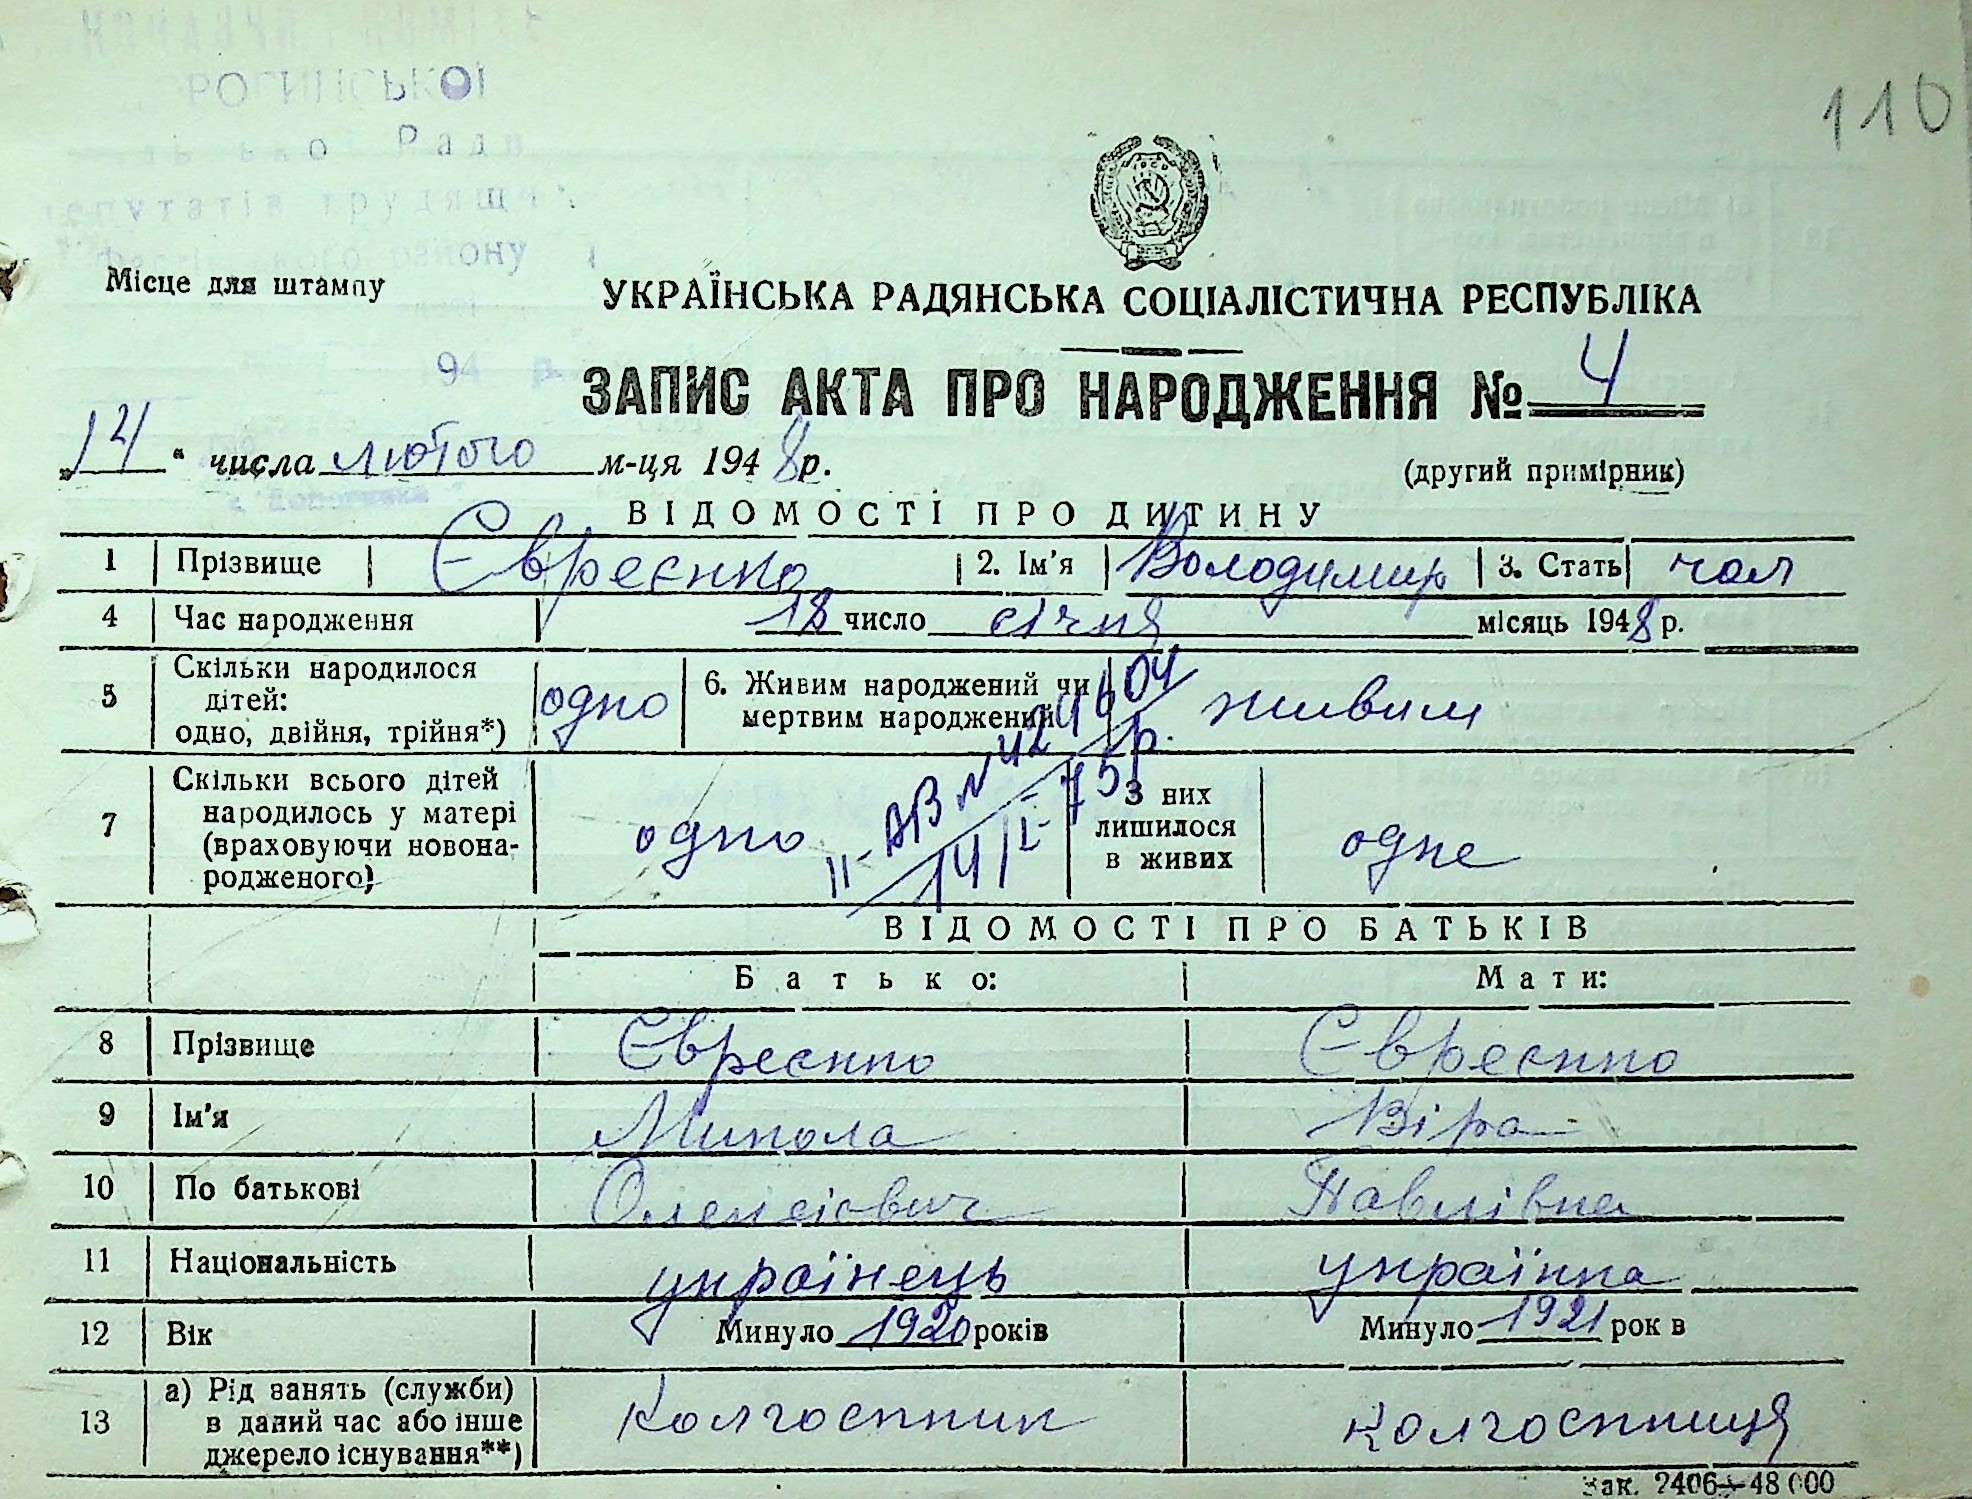 РОГИНСЬКОЇ
Ради
депутатів трудящ
району
110
Місце для штампу
УКРАЇНСЬКА РАДЯНСЬКА СОЦІАЛІСТИЧНА РЕСПУБЛІКА
94 р.
ЗАПИС АКТА ПРО НАРОДЖЕННЯ № 4
„14“ числа лютого м-ця 1948 р.
(другий примірник)
ВІДОМОСТІ ПРО ДИТИНУ
1 Прізвище Євреєнко 2. Ім'я Володимир 3. Стать чол
4 Час народження 18 число січня місяць 1948 р.
5 Скільки народилося дітей: одно, двійня, трійня*) одно 6. Живим народжений чи мертвим народжений живим
7 Скільки всього дітей народилось у матері (враховуючи новонародженого) одно З них лишилося в живих одне
II-АВ № 429604
14/I-75 р.
ВІДОМОСТІ ПРО БАТЬКІВ
Батько: Мати:
8 Прізвище Євреєнко Євреєнко
9 Ім'я Микола Віра
10 По батькові Олексієвич Павлівна
11 Національність українець українка
12 Вік Минуло 1920 років Минуло 1921 рок в
13 а) Рід занять (служби) в даний час або інше джерело існування**) Колгоспник Колгоспниця
Зак. 2406—48 000